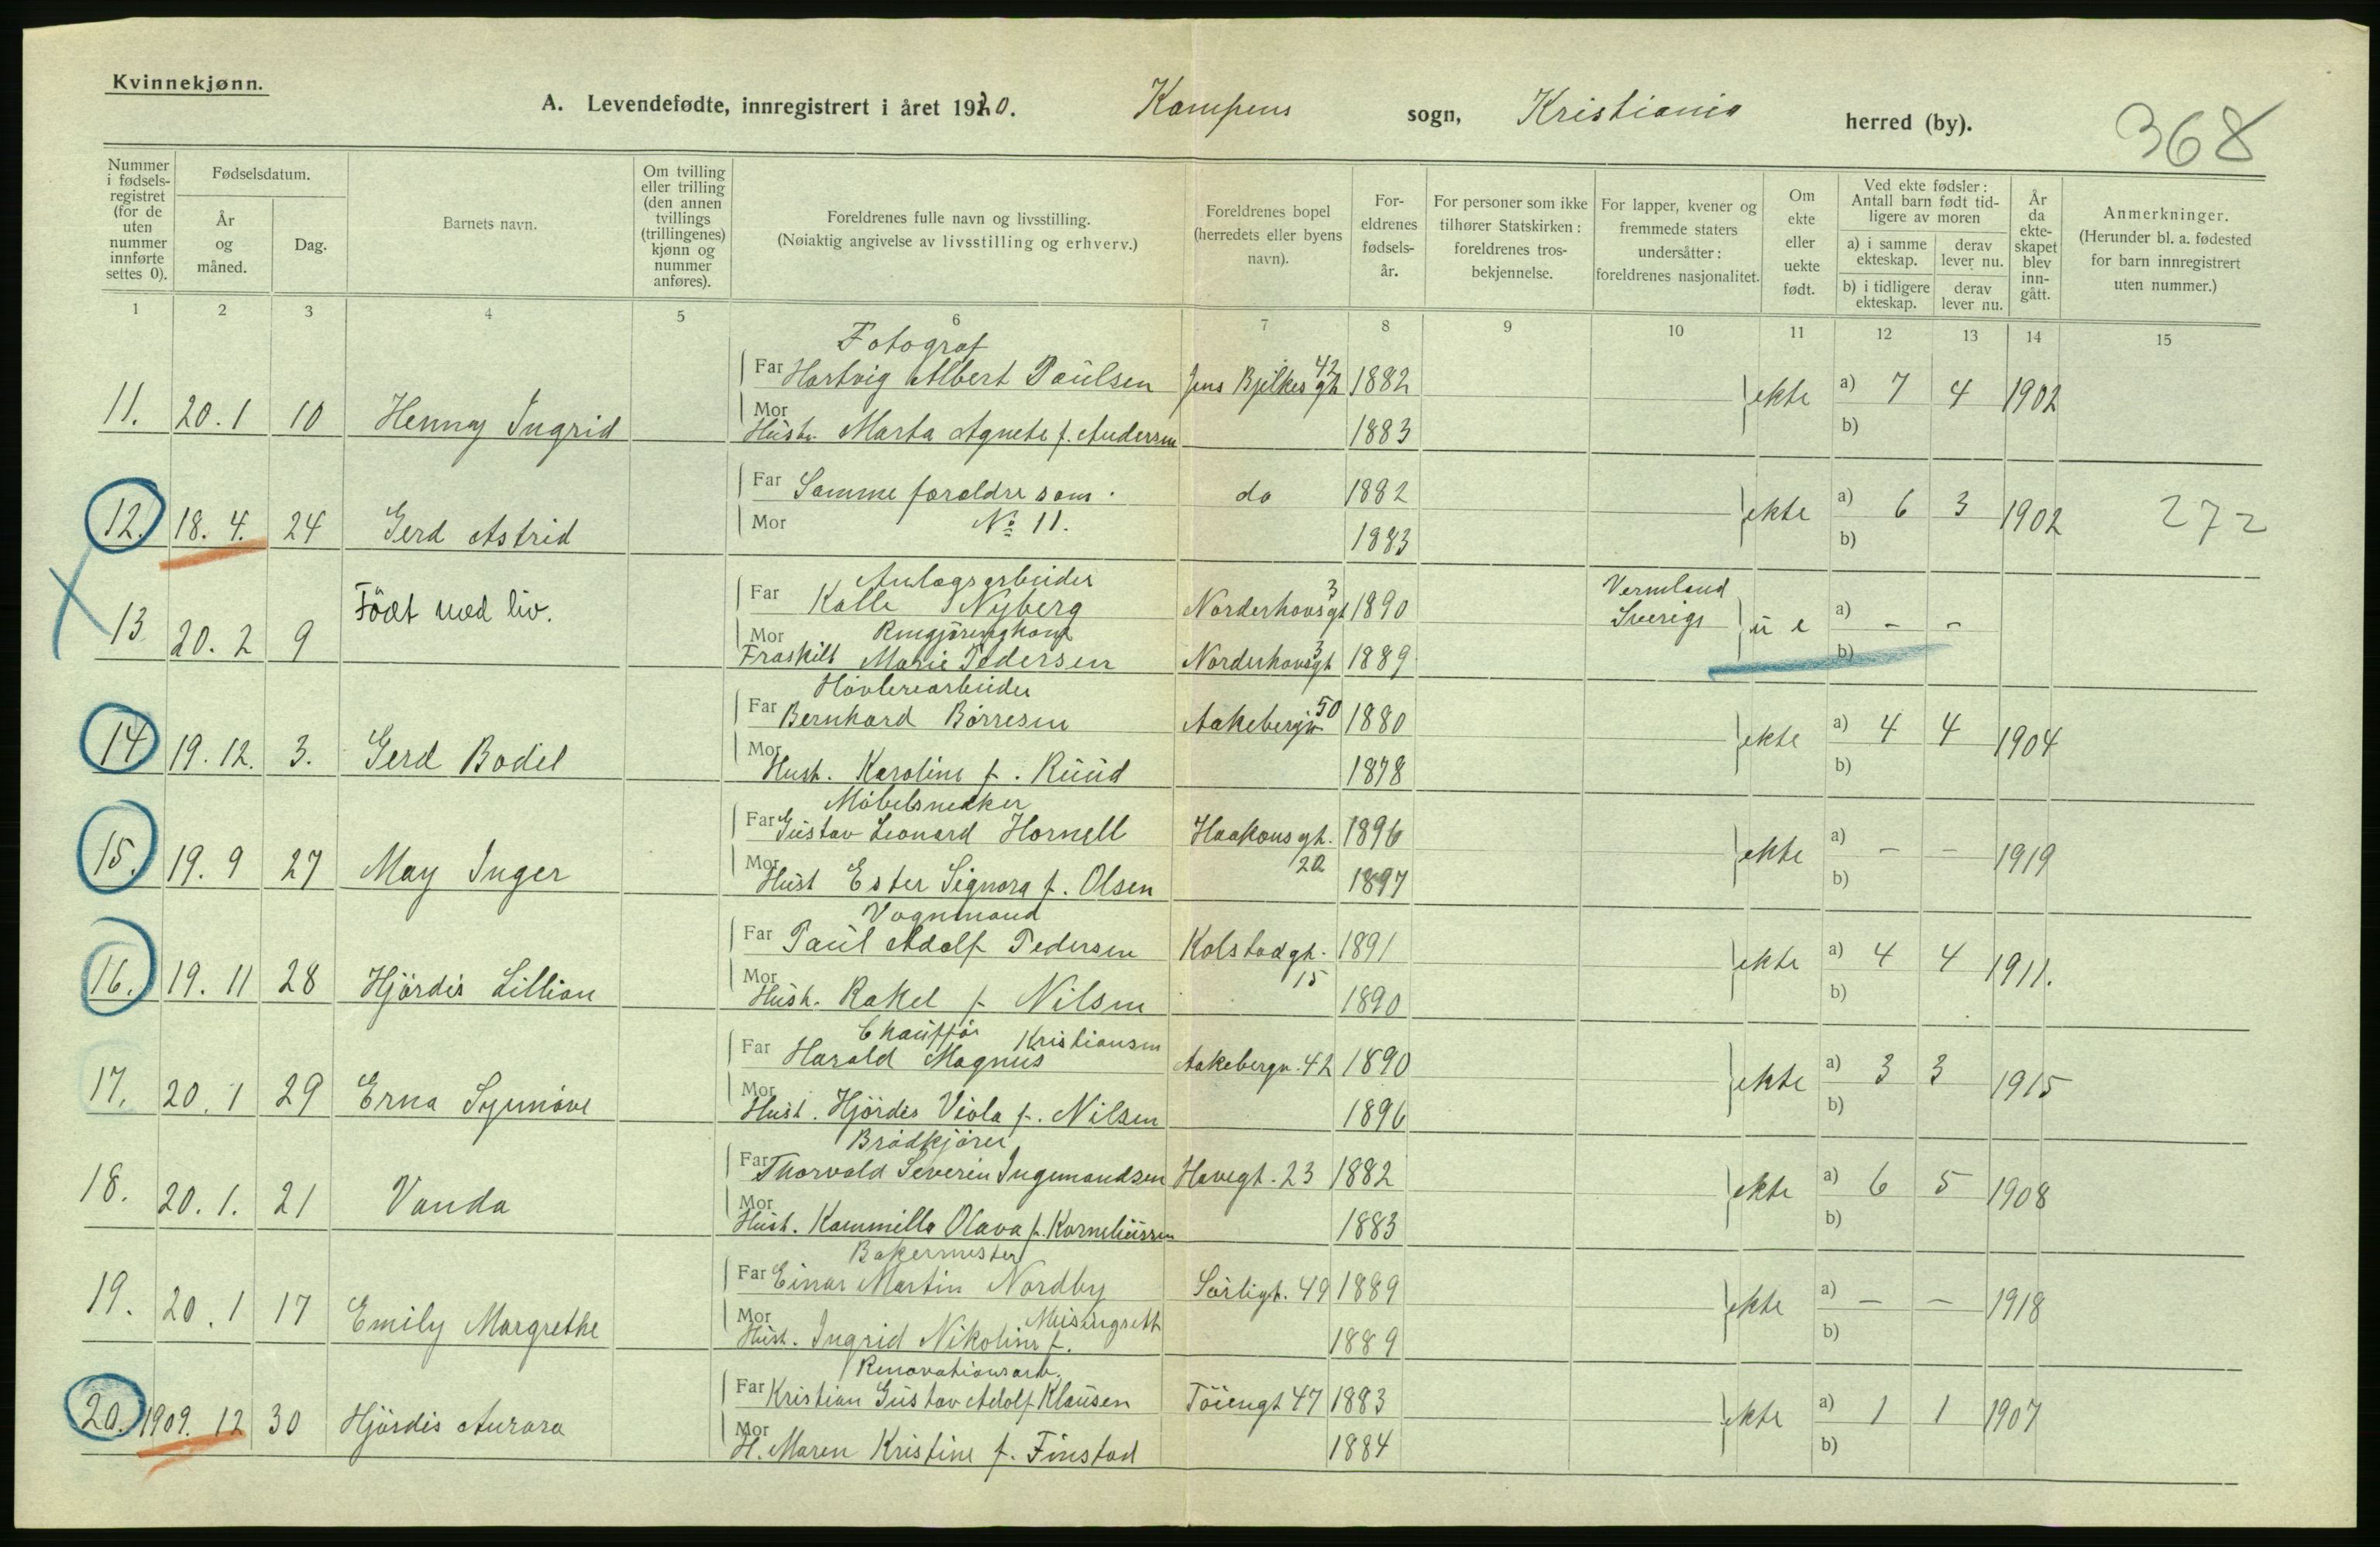 Kvinnekjønn.
A. Levendefødte, innregistrert i året 1920. Kampens sogn, Kristiania herred (by).
368
Nummer i fødsels-registret (for de uten nummer innførte settes 0).
Fødselsdatum.
År og måned.
Dag.
Barnets navn.
Om tvilling eller trilling (den annen tvillings (trillingenes) kjønn og nummer anføres).
Foreldrenes fulle navn og livsstilling.
(Nøiaktig angivelse av livsstilling og erhverv.)
Foreldrenes bopel (herredets eller byens navn).
For-eldrenes fødsels-år.
For personer som ikke tilhører Statskirken: foreldrenes tros-bekjennelse.
For lapper, kvener og fremmede staters undersåtter: foreldrenes nasjonalitet.
Om ekte eller uekte født.
Ved ekte fødsler: Antall barn født tid-ligere av moren
a) i samme ekteskap.
derav lever nu.
b) i tidligere ekteskap.
derav lever nu.
År da ekte-skapet blev inn-gått.
Anmerkninger.
(Herunder bl. a. fødested for barn innregistrert uten nummer.)
1 2 3 4 5 6 7 8 9 10 11 12 13 14 15
Fotograf
Far Hartvig Albert Paulsen Jens Bjelkes gt 42 1882
11. 20. 1 10 Henny Ingrid ekte a) 7 4 1902
Mor Hustr. Marta Agnete f. Andersen 1883 b)
Far Samme foreldre som do 1882
12. 18. 4. 24 Gerd Astrid ekte a) 6 3 1902 272
Mor No 11. 1883 b)
Anlægsarbeider
Far Kalle Nyberg Norderhovsgt 3 1890 Vermland Sverige
13 20. 2 9 Födt med liv. u e a) - -
Rengjöringskone
Mor Fraskilt Marie Pedersen Norderhovsgt 3 1889 b)
Høvleriarbeider
Far Bernhard Börresen Aakebergv 50 1880
14 19. 12. 3. Gerd Bodil ekte a) 4 4 1904
Mor Hust. Karoline f. Ruud 1878 b)
Möbelsnedker
Far Gustav Leonard Hornell Haakons gt. 20 1896
15. 19. 9 27 May Inger ekte a) - - 1919
Mor Hust Ester Signora f. Olsen 1897 b)
Vognmand
Far Paul Adolf Pedersen Kolstadgt. 15 1891
16. 19. 11 28 Hjördis Lillian ekte a) 4 4 1911.
Mor Hust. Rakel f. Nilsen 1890 b)
Chaufför
Far Harald Magnus Kristiansen Aakebergv. 42 1890
17. 20. 1 29 Erna Synnöve ekte a) 3 3 1915
Mor Hust. Hjördis Viola f. Nilsen 1896 b)
Brödkjörer
Far Thorvald Severin Ingemandsen Havegt. 23 1882
18. 20. 1. 21 Vanda ekte a) 6 5 1908
Mor Hust. Kammilla Olava f. Korneliussen 1883 b)
Bakermester
Far Einar Martin Nordby Sörligt. 49 1889
19. 20. 1 17 Emily Margrethe ekte a) - - 1918
Mor Hust. Ingrid Nikoline f. 1889 b)
Renovationsarb.
Far Kristian Gustav Adolf Klausen Töiengt 47 1883
20. 1909. 12 30 Hjördis Aurora ekte a) 1 1 1907
Mor H. Maren Kristine f. Finstad 1884 b)